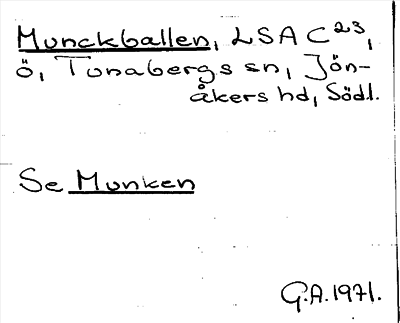 Munckballen, LSA C23,
ö, Tunabergs sn, Jön-
åkers hd, Södl.
Se Munken
G.A. 1971.